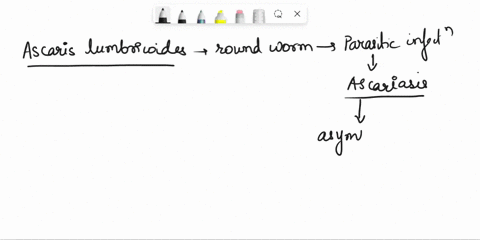 Ascaris lumbricoides → round worm → Parasitic infectⁿ
↓
Ascariasis
↓
asym